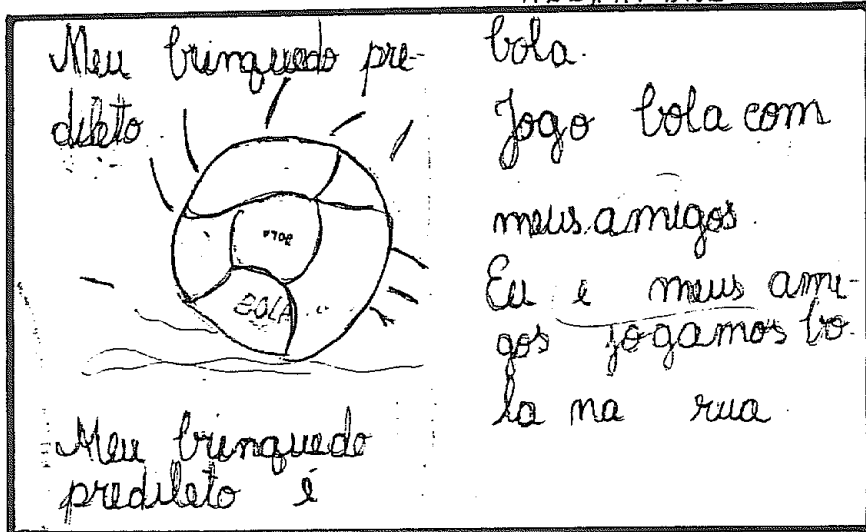 Meu brinquedo pre-
dileto
BOLA
BOLA
Meu brinquedo
predileto é
bola.
Jogo bola com
meus amigos.
Eu e meus ami-
gos jogamos bo-
la na rua.